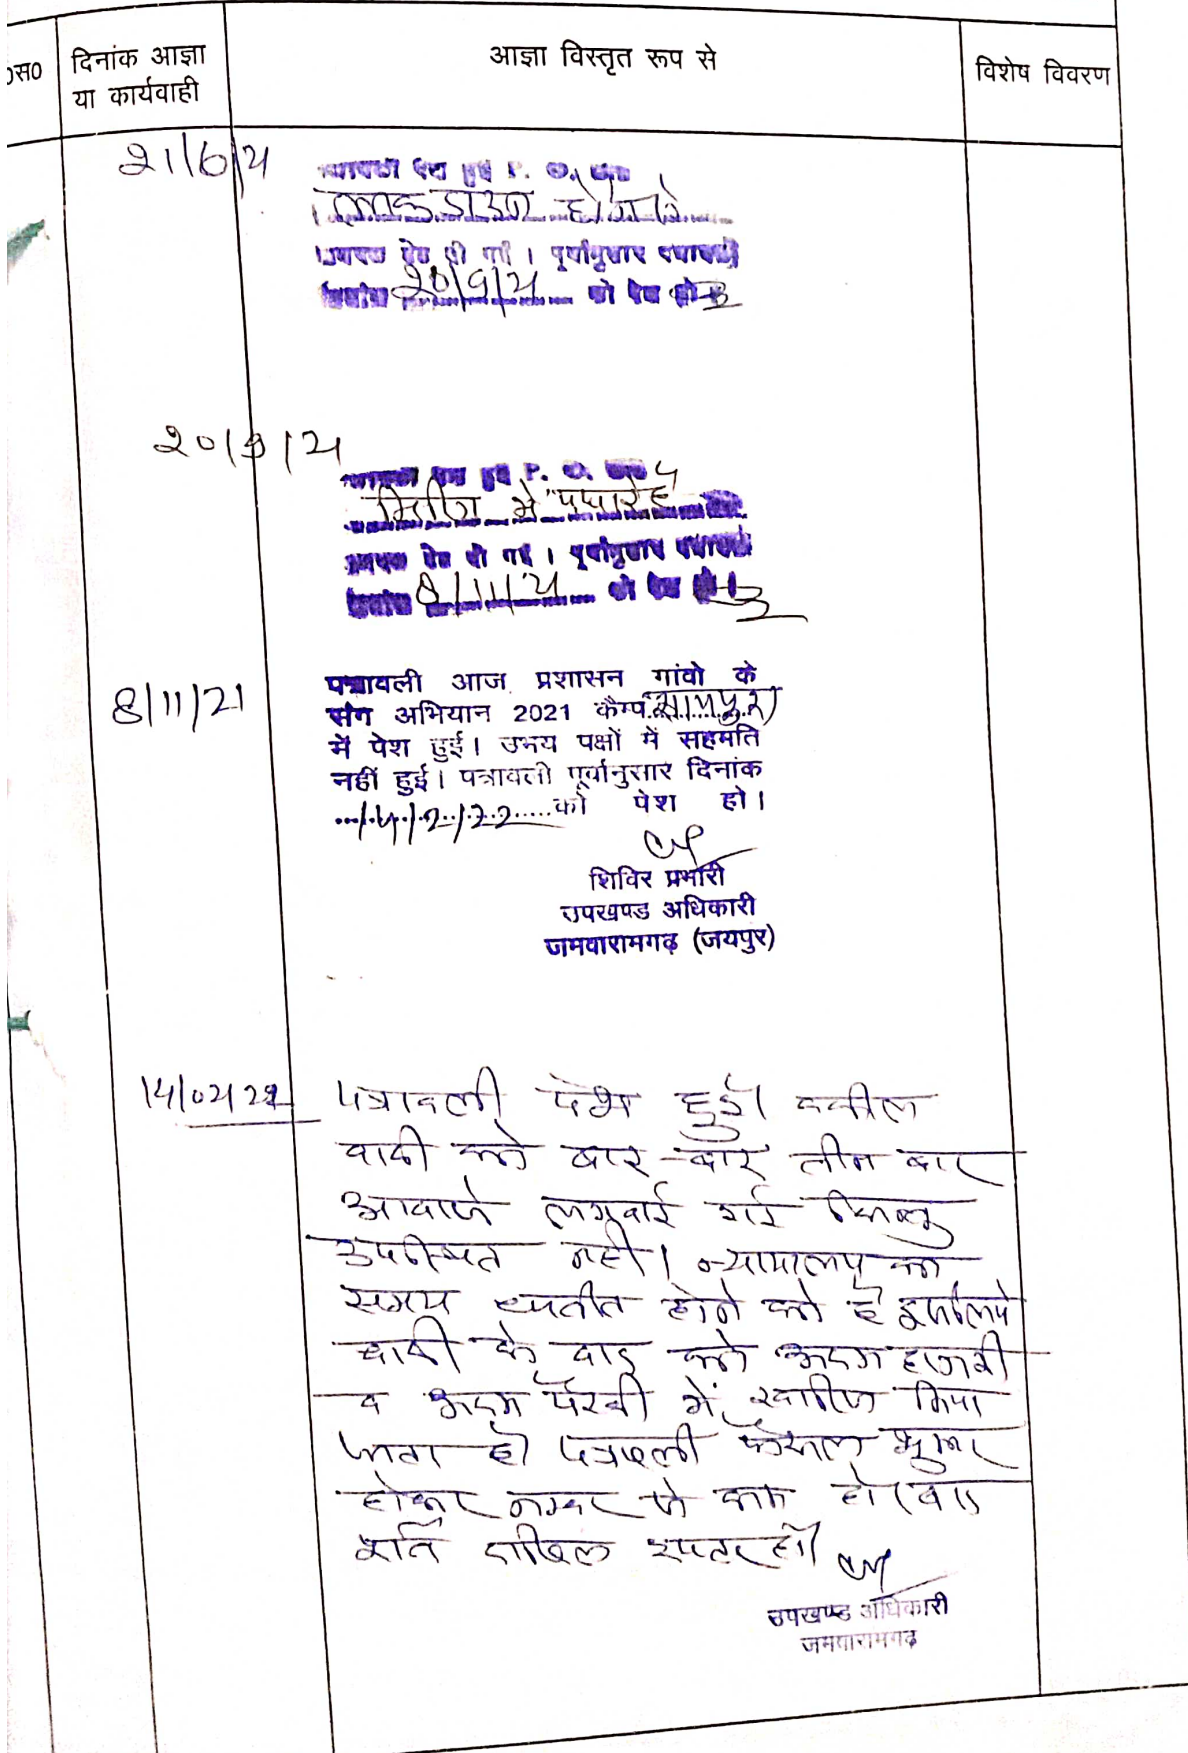 ०स०
दिनांक आज्ञा
या कार्यवाही
आज्ञा विस्तृत रूप से
विशेष विवरण
21/6/21
पत्रावली पेश हुई P. O.
लाकडाउन होने से
पेश की गई । पूर्वानुसार पत्रावली
दिनांक 20/9/21 को पेश हो
20/9/21
पत्रावली पेश हुई P. O.
मिटिंग में पधारे है
पेश की गई । पूर्वानुसार पत्रावली
दिनांक 8/11/21 को पेश हो
8/11/21
पत्रावली आज प्रशासन गांवो के
संग अभियान 2021 कैम्प
में पेश हुई। उभय पक्षों में सहमति
नहीं हुई। पत्रावली पूर्वानुसार दिनांक
14/2/22 को पेश हो।
शिविर प्रभारी
उपखण्ड अधिकारी
जमवारामगढ़ (जयपुर)
14/02/22
पत्रावली पेश हुई। वकील
वादी को बार-बार तीन बार
आवाजे लगवाई गई किन्तु
उपस्थित नही। न्यायालय का
समय व्यतीत होने को है इसलिये
वादी के वाद को अदम हाजरी
व अदम पैरवी में खारिज किया
जाता है। पत्रावली फैसल शुमार
होकर नम्बर से कम हो। बाद
दाखिल दफ्तर हो।
उपखण्ड अधिकारी
जमवारामगढ़